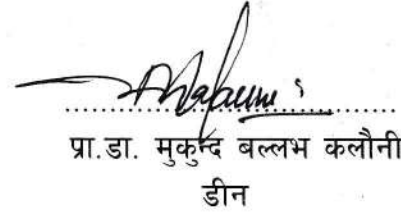 प्रा.डा. मुकुन्द बल्लभ कलौनी
डीन